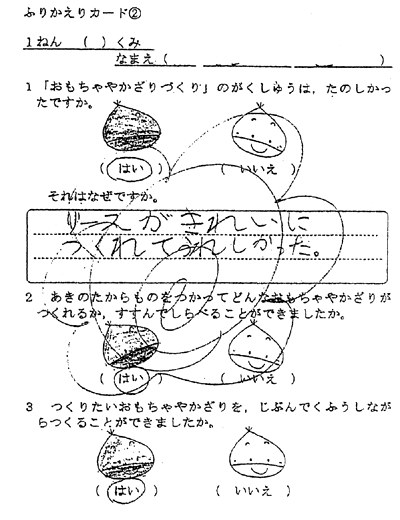 ふりかえりカード②
1ねん ( )くみ
なまえ( )
1 「おもちゃやかざりづくり」のがくしゅうは,たのしかっ
たですか。
(はい) (いいえ)
それはなぜですか。
リースがきれいに
つくれてうれしかった。
2 あきのたからものをつかってどんなおもちゃやかざりが
つくれるか,すすんでしらべることができましたか。
(はい) (いいえ)
3 つくりたいおもちゃやかざりを,じぶんでくふうしなが
らつくることができましたか。
(はい) (いいえ)